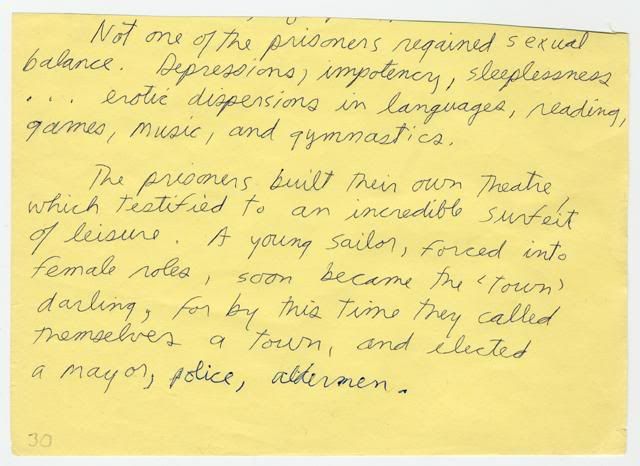 Not one of the prisoners regained sexual
balance. Depressions, impotency, sleeplessness
. . . erotic dispersions in languages, reading,
games, music, and gymnastics.
The prisoners built their own theatre,
which testified to an incredible surfeit
of leisure. A young sailor, forced into
female roles, soon became the 'town'
darling, for by this time they called
themselves a town, and elected
a mayor, police, aldermen.
30